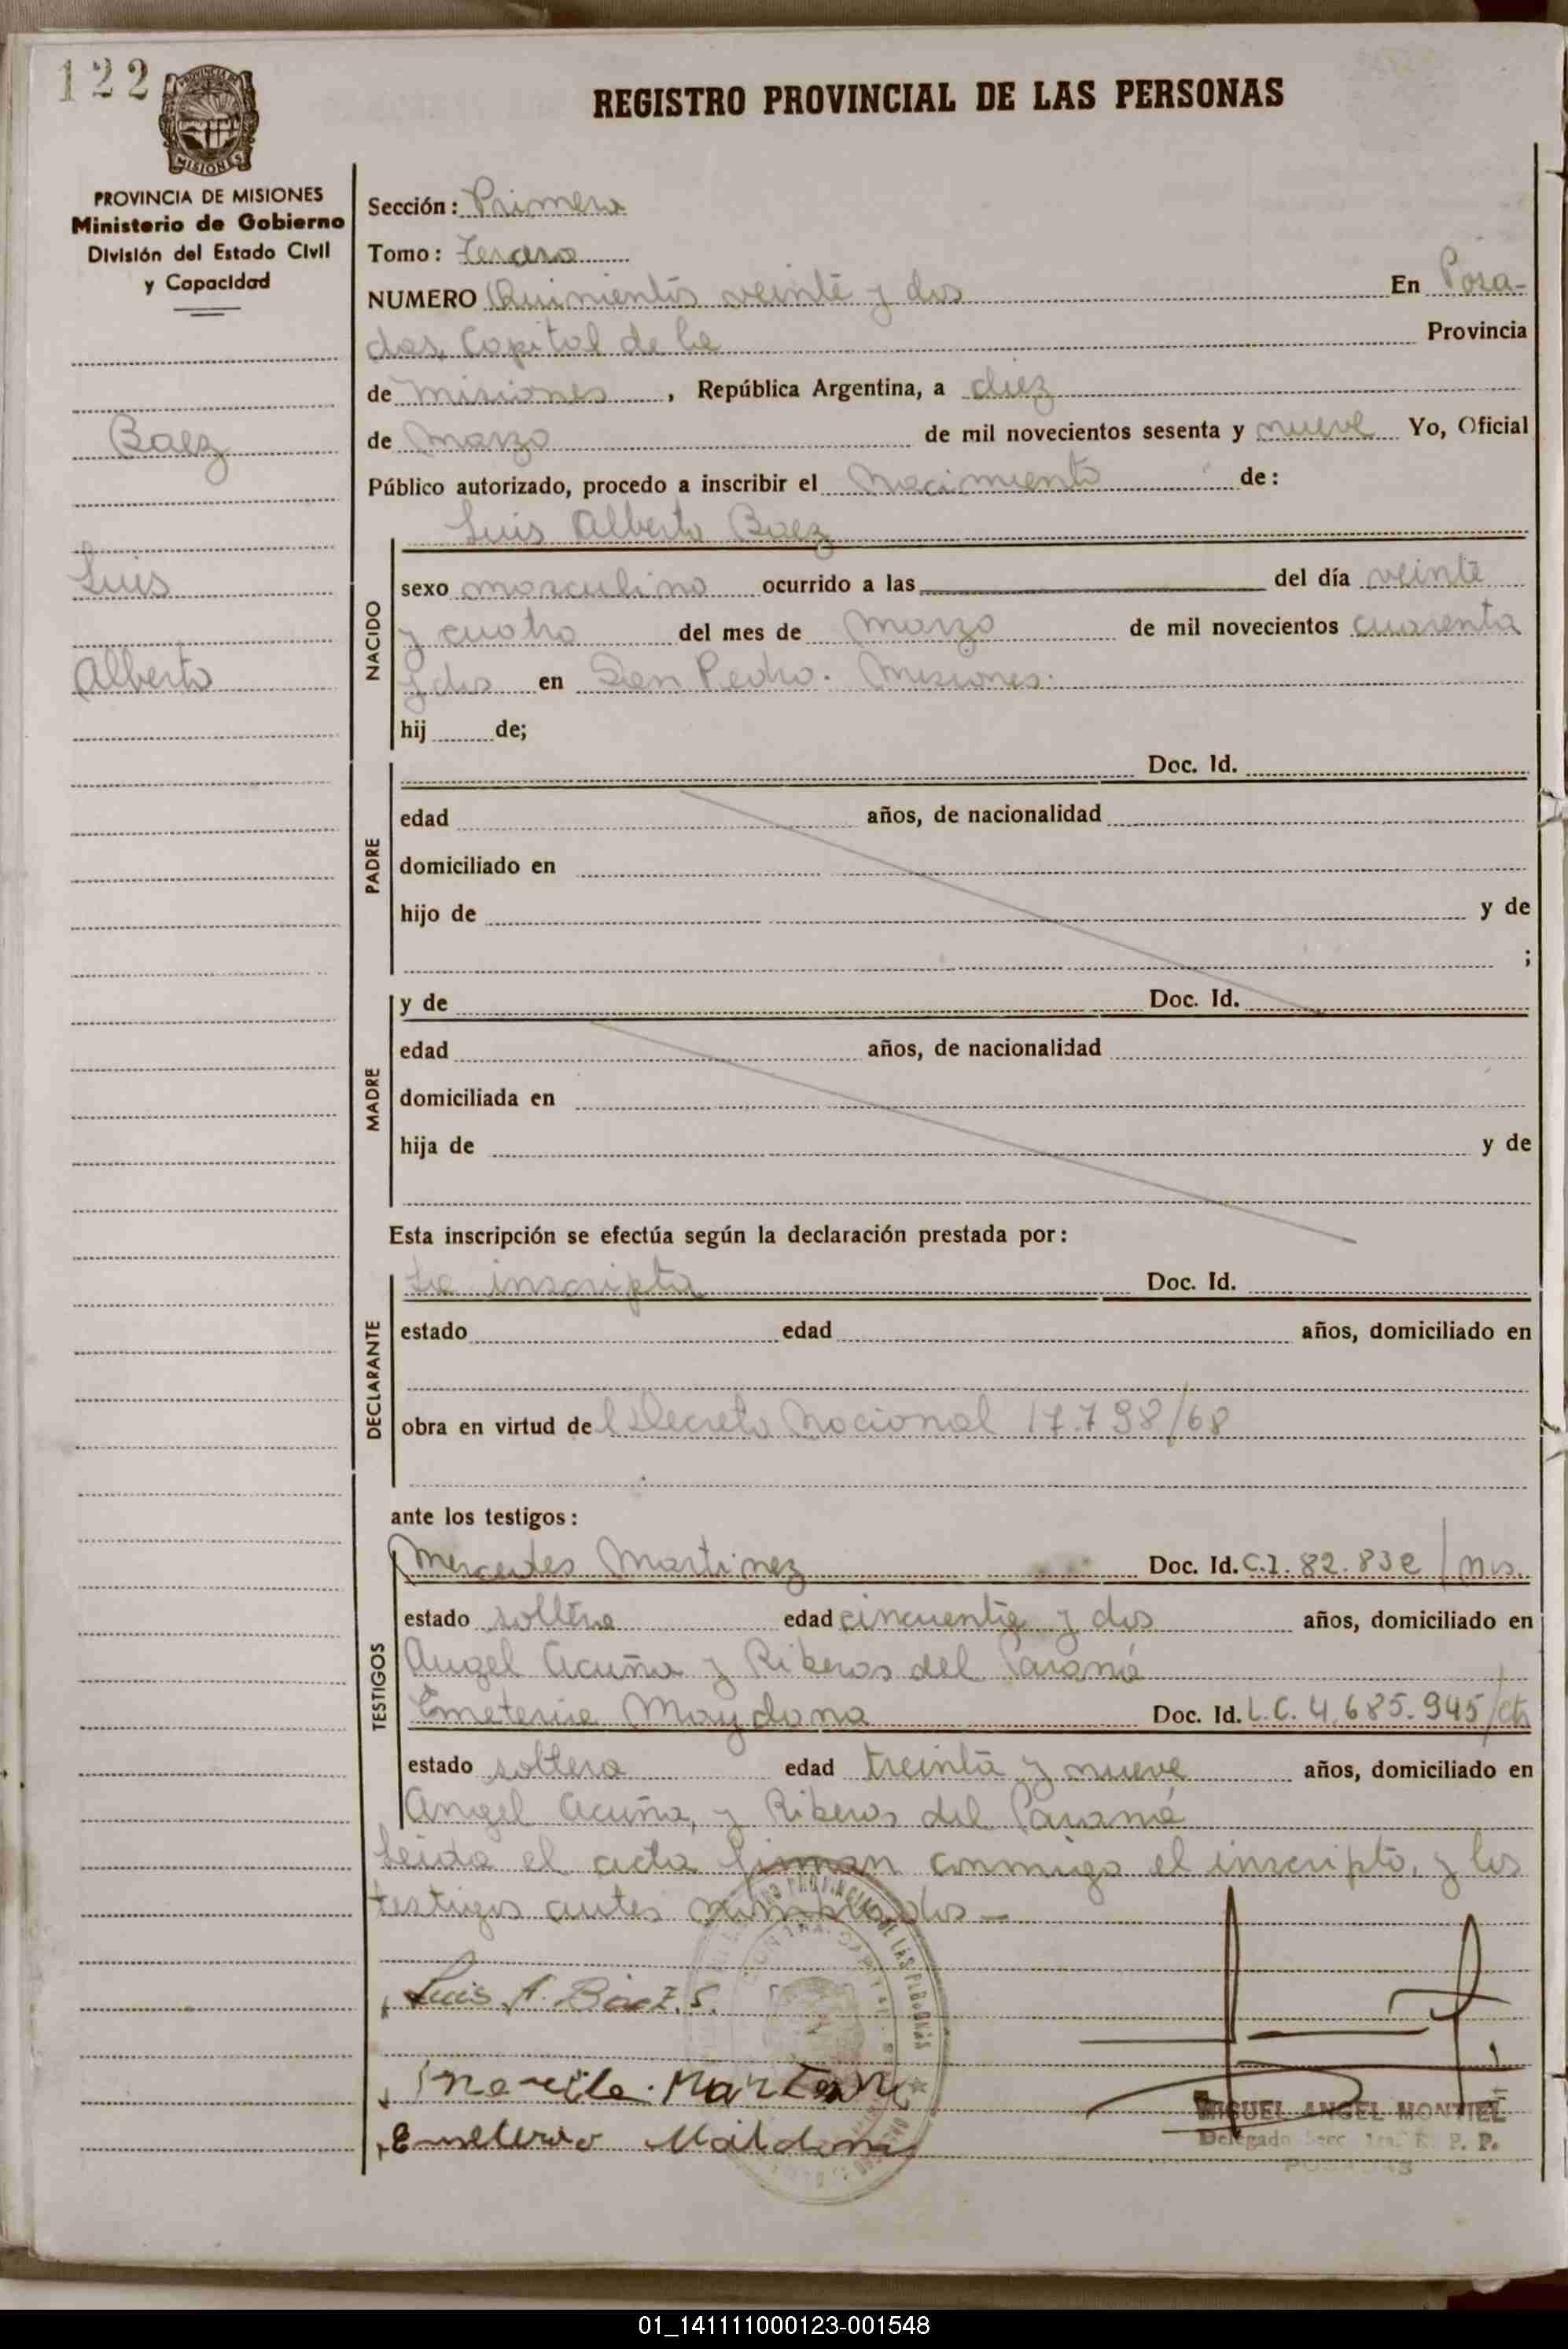 122
PROVINCIA DE MISIONES
MISIONES
REGISTRO PROVINCIAL DE LAS PERSONAS
PROVINCIA DE MISIONES
Ministerio de Gobierno
División del Estado Civil
y Capacidad
Baez
Luis
Alberto
Sección: Primera
Tomo: tercero
NUMERO Quinientos veinte y dos En Posa-
das, Capital de la Provincia
de Misiones, República Argentina, a diez
de Marzo de mil novecientos sesenta y nueve Yo, Oficial
Público autorizado, procedo a inscribir el Nacimiento de:
Luis Alberto Baez
NACIDO
sexo masculino ocurrido a las del día veinte
y cuatro del mes de Marzo de mil novecientos cuarenta
y dos en San Pedro. Misiones.
hij de;
PADRE
Doc. Id.
edad años, de nacionalidad
domiciliado en
hijo de y de
;
MADRE
y de Doc. Id.
edad años, de nacionalidad
domiciliada en
hija de y de
Esta inscripción se efectúa según la declaración prestada por:
DECLARANTE
inscripta Doc. Id.
estado edad años, domiciliado en
obra en virtud del Decreto Nacional 17.798/68
ante los testigos:
TESTIGOS
Mercedes Martinez Doc. Id. C.I. 82.832/Mis.
estado soltera edad cincuenta y dos años, domiciliado en
Angel Acuña y Riberas del Paraná
Emeteria Maydana Doc. Id. L.C. 4.685.945/
estado soltera edad treinta y nueve años, domiciliado en
Angel Acuña, y Riberas del Paraná
Leida el acta firman conmigo el inscripto, y los
testigos antes nombrados -
Luis A. Báez. S.
MIGUEL ANGEL MONTIEL
Delegado Secc. 1ra. R. P. P.
POSADAS
01_141111000123-001548